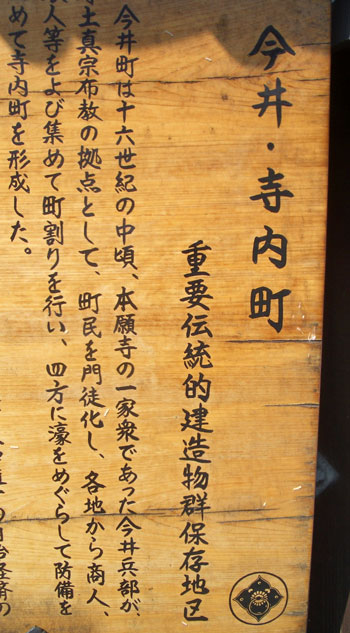 今井・寺内町
重要伝統的建造物群保存地区
今井町は十六世紀の中頃、本願寺の一家衆であった今井兵部が、
土真宗布教の拠点として、町民を門徒化し、各地から商人、
人等をよび集めて町割りを行い、四方に濠をめぐらして防備を
めて寺内町を形成した。